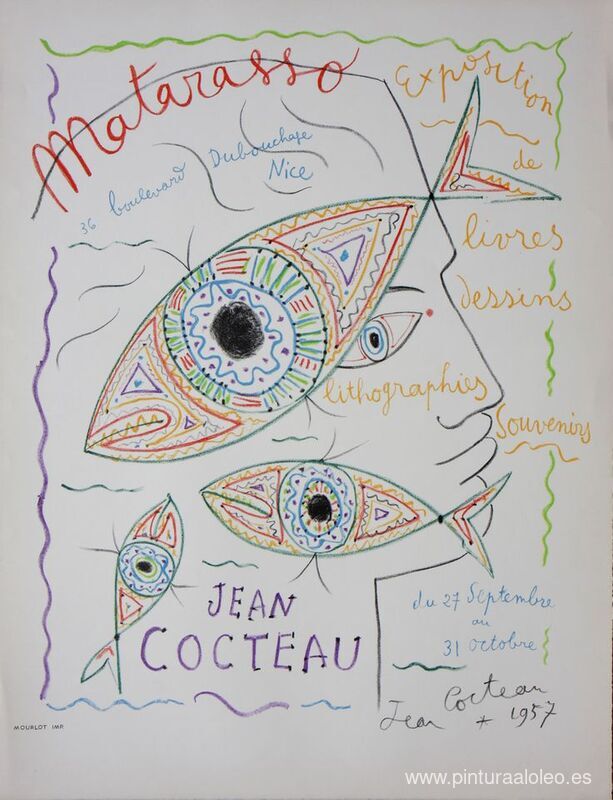 Matarasso
Exposition
de
livres
dessins
lithographies
Souvenirs
36 boulevard Dubouchage
Nice
JEAN
COCTEAU
du 27 Septembre
au
31 octobre
Jean Cocteau
1957
MOURLOT IMP.
www.pinturaaloleo.es